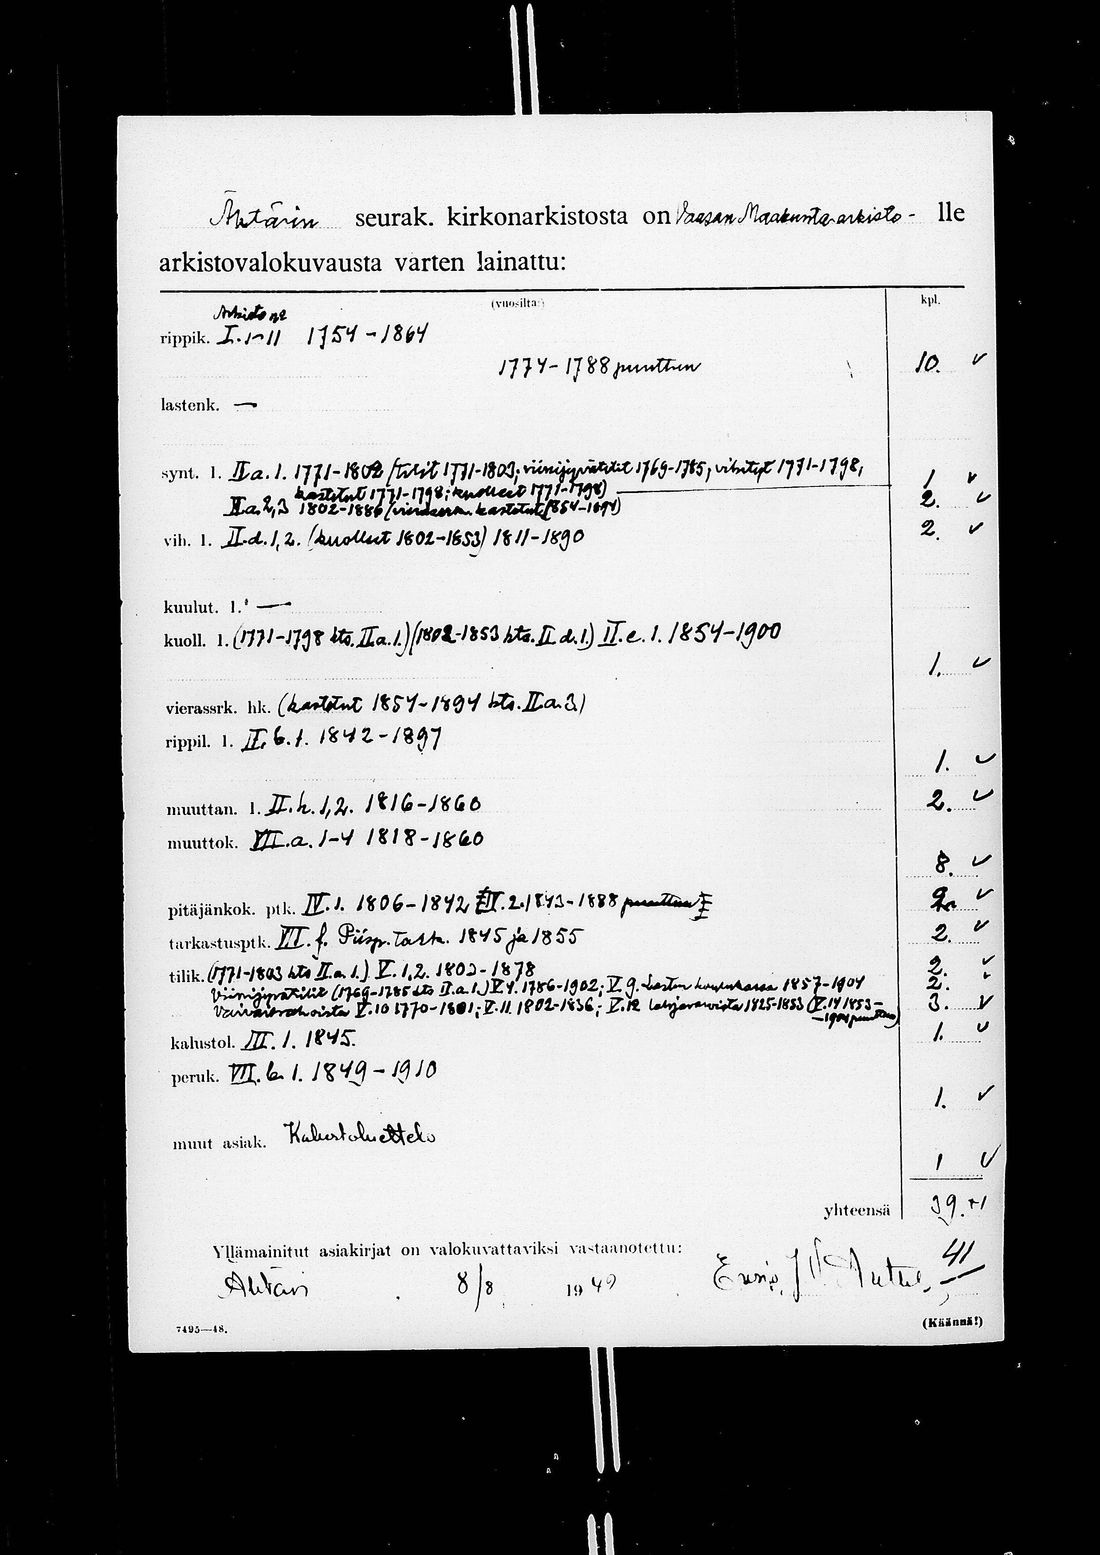 Ähtärin seurak. kirkonarkistosta on Vaasan Maakunta-arkisto - lle
arkistovalokuvausta varten lainattu:
(vuosilta:) kpl.
Arkisto n:o
rippik. I. 1-11 1754-1864
1774-1788 puuttuu 10. ✓
lastenk. —
synt. l. II a. 1. 1771-1802 (tilit 1771-1803; viinijyvätilit 1769-1785; vihityt 1771-1798,
kastetut 1771-1798; kuolleet 1771-1798) 1 ✓
II a. 2,3 1802-1886 (vierasseur. kastetut 1854-1894) 2. ✓
vih. l. II.d.1,2. (kuolleet 1802-1853) 1811-1890 2. ✓
kuulut. l. —
kuoll. l. (1771-1798 kts. II a. 1.) (1802-1853 kts. II d. 1.) II.e. 1. 1854-1900
1. ✓
vierassrk. hk. (kastetut 1854-1894 kts. II a. 3)
rippil. l. II. b. 1. 1842-1897
1. ✓
muuttan. l. II. h. 1,2. 1816-1860 2. ✓
muuttok. VII. a. 1-4 1818-1860
8. ✓
pitäjänkok. ptk. IV. 1. 1806-1842 IV. 2. 1843-1888 puuttuu 2. ✓
tarkastusptk. VII. f. Piisp. tark. 1845 ja 1855 2. ✓
tilik. (1771-1803 kts II a. 1.) V. 1,2. 1802-1878 2. ✓
Viinijyvätilit (1769-1785 kts II a. 1.) V 4. 1786-1902; V 9. Lasten koulukassa 1857-1904 2.
Vaivaisrahoista V. 10 1770-1801; V. 11 1802-1836; V. 12 1825-1853 (V. 14 1853- 3. ✓
-1901 puuttuu)
kalustol. III. 1. 1845. 1. ✓
peruk. VII. b. 1. 1849-1910
1. ✓
muut asiak. Kalustoluettelo
1 ✓
yhteensä 39. +1
Yllämainitut asiakirjat on valokuvattaviksi vastaanotettu: 41
Ähtäri 8/8 1949
7495—48. (Käännä!)